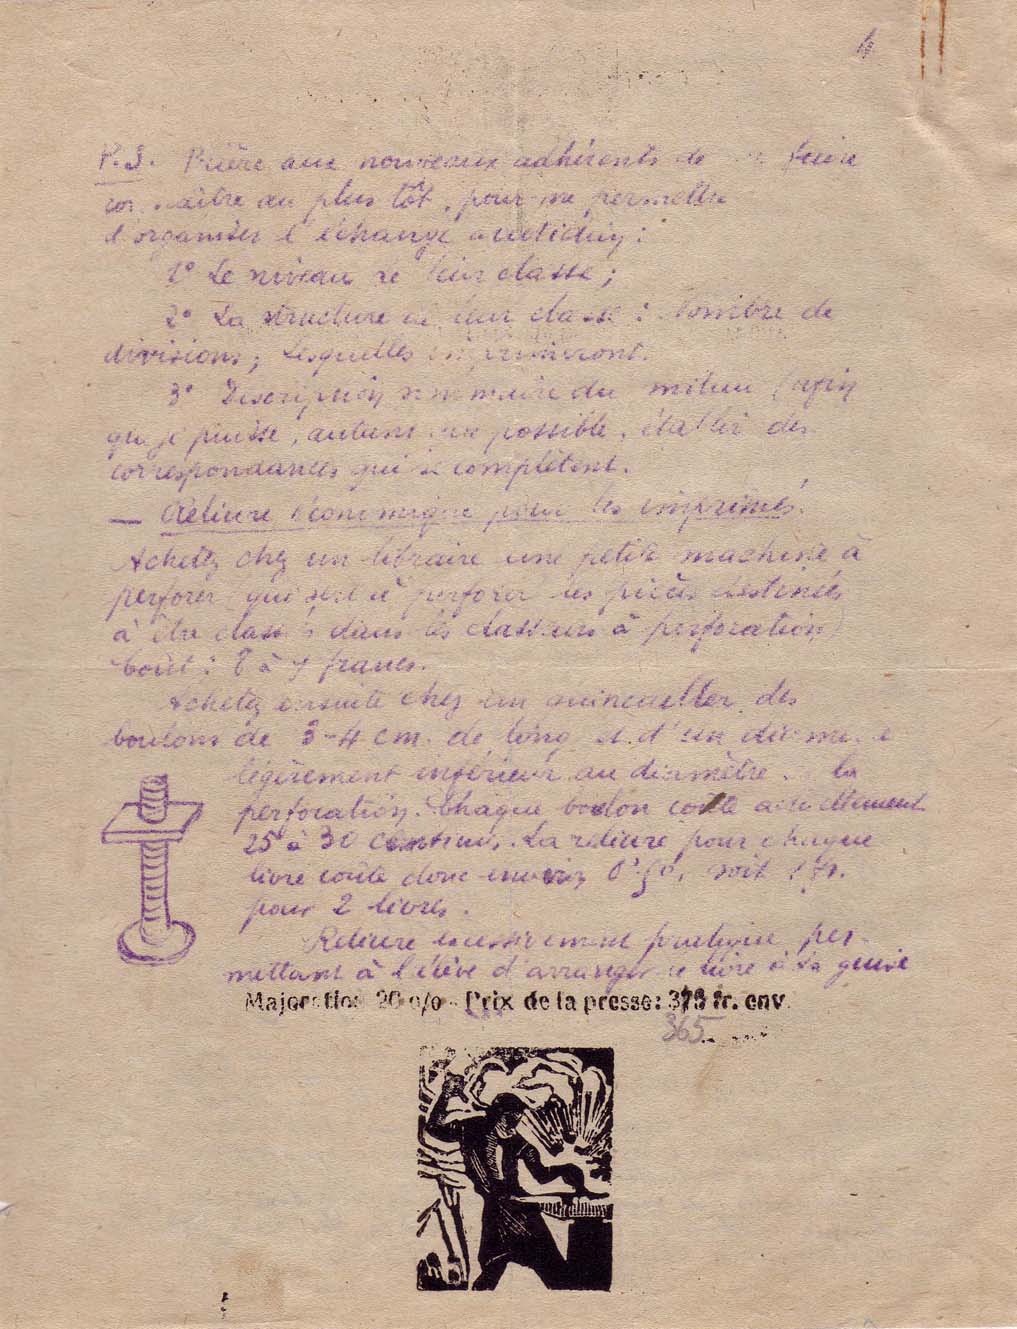 4
P.S. Prière aux nouveaux adhérents de faire
connaître au plus tôt, pour me permettre
d'organiser l'échange
1° Le niveau de leur classe;
2° La structure de leur classe : Nombre de
divisions; Lesquelles imprimeront.
3° Description sommaire du milieu (afin
que je puisse, autant que possible, établir des
correspondances qui se complètent.
— Reliure économique pour les imprimés.
Achetez chez un libraire une petite machine à
perforer (qui sert à perforer les pièces destinées
à être classées dans les classeurs à perforation)
Coût : 8 à 9 francs.
Achetez ensuite chez un quincailler des
boulons de 3-4 cm. de long et d'un diamètre
légèrement inférieur au diamètre de la
perforation. Chaque boulon coûte actuellement
25 à 30 centimes. La reliure pour chaque
livre coûte donc environ 0f50, soit 1 fr.
pour 2 livres.
Reliure excessivement pratique, per-
mettant à l'élève d'arranger le livre à sa guise
Majoration 20 o/o - Prix de la presse: 375 fr. env.
365